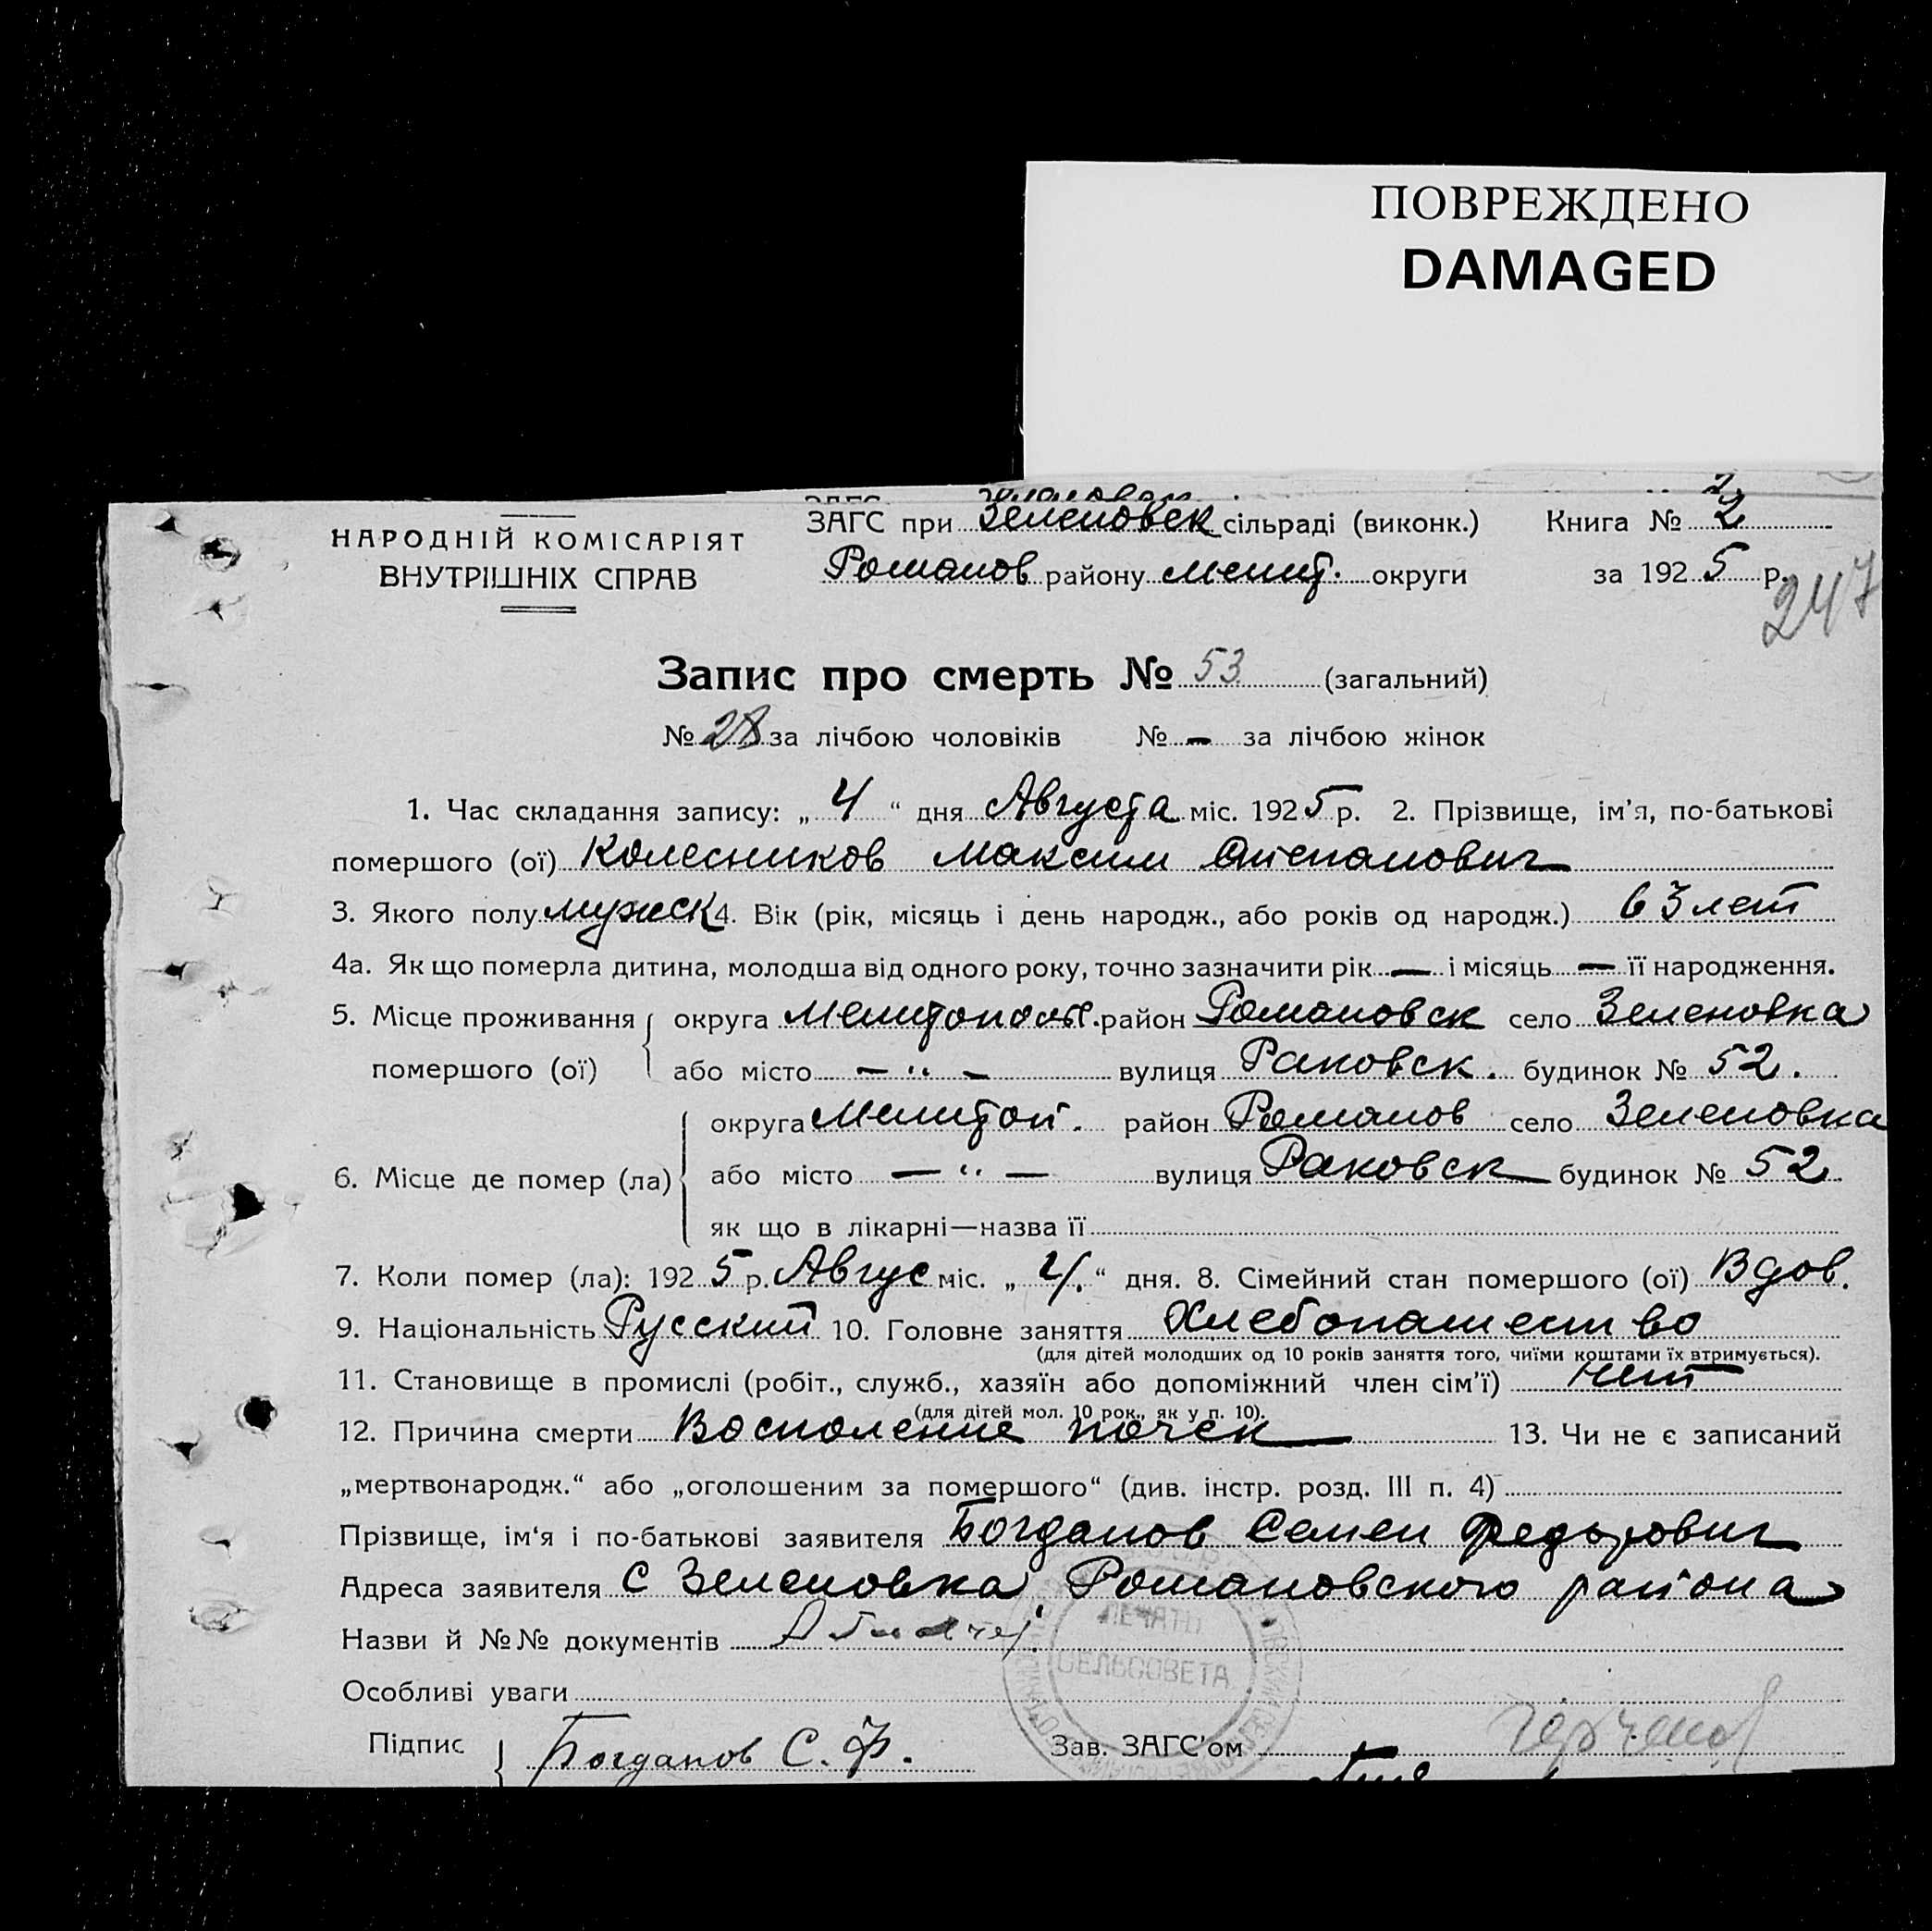 ПОВРЕЖДЕНО
DAMAGED
НАРОДНІЙ КОМІСАРІЯТ
ВНУТРІШНІХ СПРАВ
ЗАГС при Зеленовск сільраді (виконк.) Книга № 2
Романов району Мелит. округи за 1925 р.
247
Запис про смерть № 53 (загальний)
№ 28 за лічбою чоловіків № — за лічбою жінок
1. Час складання запису: „4“ дня Августа міс. 1925 р. 2. Прізвище, ім’я, по-батькові
помершого (ої) Колесников Максим Степанович
3. Якого полу мужск 4. Вік (рік, місяць і день народж., або років од народж.) 63 лет
4а. Як що померла дитина, молодша від одного року, точно зазначити рік — і місяць — її народження.
5. Місце проживання округа Мелитопол. район Романовск село Зеленовка
помершого (ої) або місто — " — вулиця Раковск. будинок № 52.
округа Мелитоп. район Романов село Зеленовка
6. Місце де помер (ла) або місто — " — вулиця Раковск будинок № 52.
як що в лікарні—назва її
7. Коли помер (ла): 1925 р. Авгус міс. „4.“ дня. 8. Сімейний стан помершого (ої) Вдов.
9. Національність Русский 10. Головне заняття Хлебопашество
(для дітей молодших од 10 років заняття того, чиїми коштами їх втримується).
11. Становище в промислі (робіт., служб., хазяїн або допоміжний член сім’ї) нет
(для дітей мол. 10 рок., як у п. 10).
12. Причина смерти Восполение почек 13. Чи не є записаний
„мертвонародж.“ або „оголошеним за помершого“ (див. інстр. розд. III п. 4)
Прізвище, ім‘я і по-батькові заявителя Богданов Семен Федорович
Адреса заявителя С Зеленовка Романовского района
Назви й №№ документів
ПЕЧАТЬ
СЕЛЬСОВЕТА
Особливі уваги
Підпис Богданов С. Ф. Зав. ЗАГС’ом